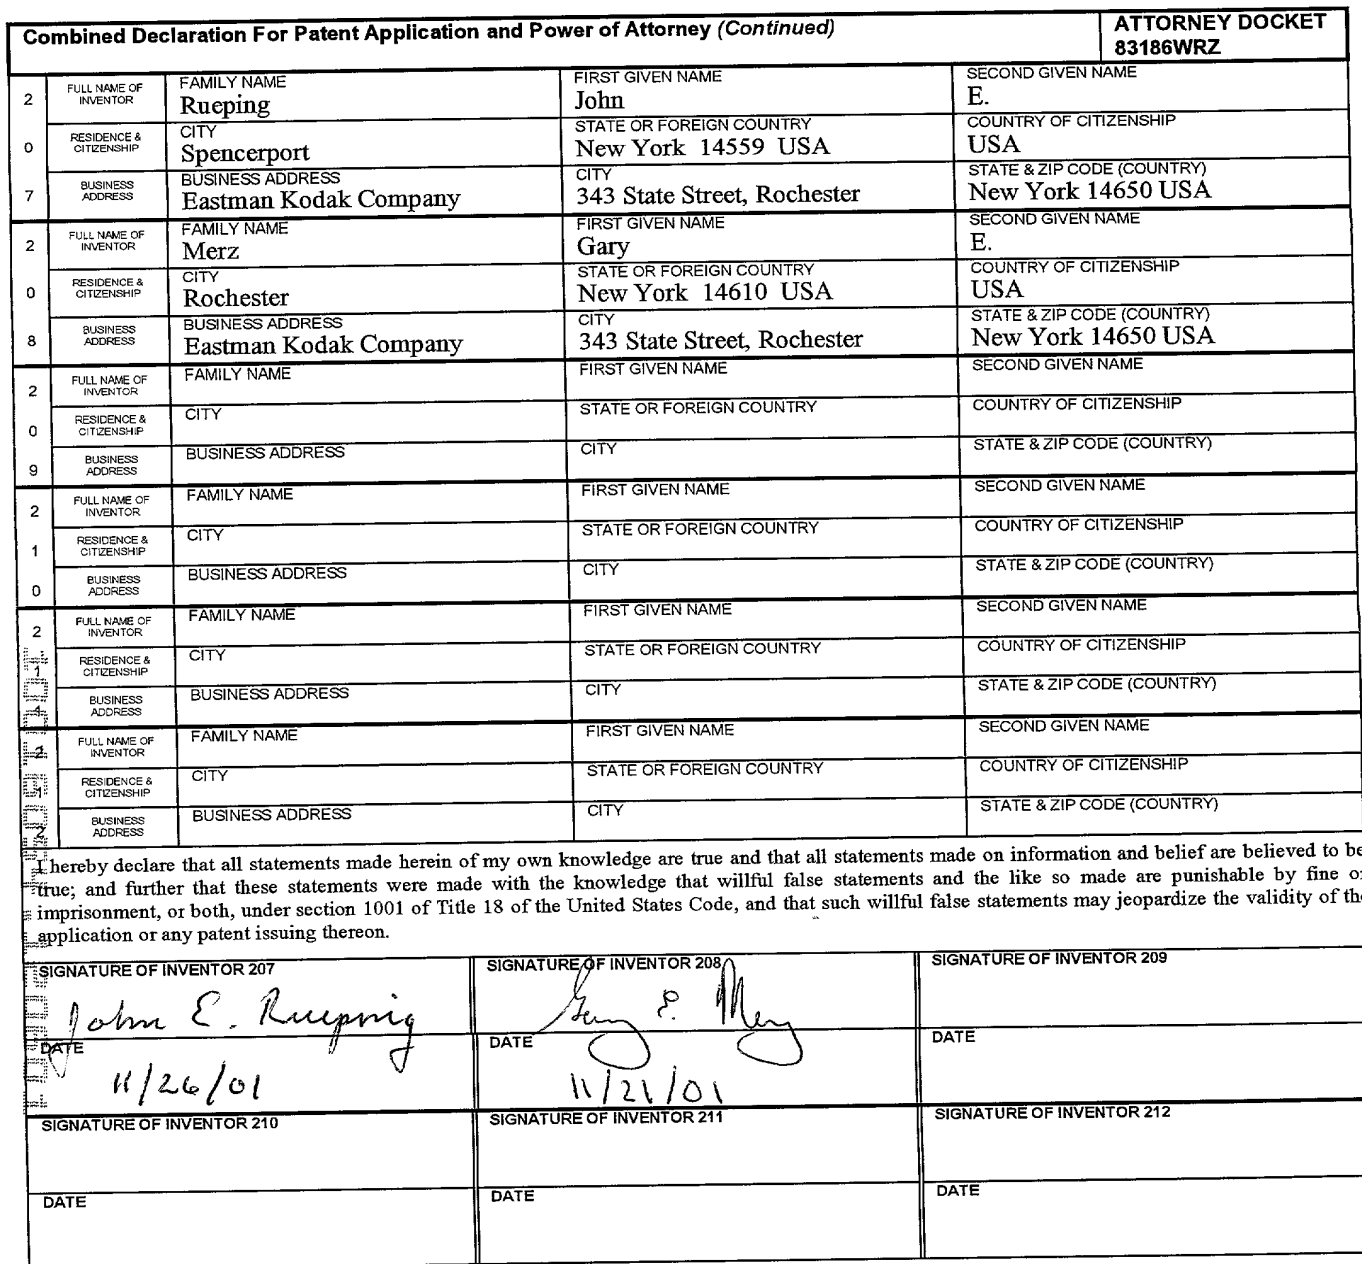 Combined Declaration For Patent Application and Power of Attorney (Continued)
ATTORNEY DOCKET
83186WRZ
2 0 7
FULL NAME OF INVENTOR
FAMILY NAME
Rueping
FIRST GIVEN NAME
John
SECOND GIVEN NAME
E.
RESIDENCE & CITIZENSHIP
CITY
Spencerport
STATE OR FOREIGN COUNTRY
New York 14559 USA
COUNTRY OF CITIZENSHIP
USA
BUSINESS ADDRESS
BUSINESS ADDRESS
Eastman Kodak Company
CITY
343 State Street, Rochester
STATE & ZIP CODE (COUNTRY)
New York 14650 USA
2 0 8
FULL NAME OF INVENTOR
FAMILY NAME
Merz
FIRST GIVEN NAME
Gary
SECOND GIVEN NAME
E.
RESIDENCE & CITIZENSHIP
CITY
Rochester
STATE OR FOREIGN COUNTRY
New York 14610 USA
COUNTRY OF CITIZENSHIP
USA
BUSINESS ADDRESS
BUSINESS ADDRESS
Eastman Kodak Company
CITY
343 State Street, Rochester
STATE & ZIP CODE (COUNTRY)
New York 14650 USA
2 0 9
FULL NAME OF INVENTOR
FAMILY NAME
FIRST GIVEN NAME
SECOND GIVEN NAME
RESIDENCE & CITIZENSHIP
CITY
STATE OR FOREIGN COUNTRY
COUNTRY OF CITIZENSHIP
BUSINESS ADDRESS
BUSINESS ADDRESS
CITY
STATE & ZIP CODE (COUNTRY)
2 1 0
FULL NAME OF INVENTOR
FAMILY NAME
FIRST GIVEN NAME
SECOND GIVEN NAME
RESIDENCE & CITIZENSHIP
CITY
STATE OR FOREIGN COUNTRY
COUNTRY OF CITIZENSHIP
BUSINESS ADDRESS
BUSINESS ADDRESS
CITY
STATE & ZIP CODE (COUNTRY)
2 1 1
FULL NAME OF INVENTOR
FAMILY NAME
FIRST GIVEN NAME
SECOND GIVEN NAME
RESIDENCE & CITIZENSHIP
CITY
STATE OR FOREIGN COUNTRY
COUNTRY OF CITIZENSHIP
BUSINESS ADDRESS
BUSINESS ADDRESS
CITY
STATE & ZIP CODE (COUNTRY)
2 1 2
FULL NAME OF INVENTOR
FAMILY NAME
FIRST GIVEN NAME
SECOND GIVEN NAME
RESIDENCE & CITIZENSHIP
CITY
STATE OR FOREIGN COUNTRY
COUNTRY OF CITIZENSHIP
BUSINESS ADDRESS
BUSINESS ADDRESS
CITY
STATE & ZIP CODE (COUNTRY)
I hereby declare that all statements made herein of my own knowledge are true and that all statements made on information and belief are believed to be
true; and further that these statements were made with the knowledge that willful false statements and the like so made are punishable by fine or
imprisonment, or both, under section 1001 of Title 18 of the United States Code, and that such willful false statements may jeopardize the validity of the
application or any patent issuing thereon.
SIGNATURE OF INVENTOR 207
John E. Rueping
SIGNATURE OF INVENTOR 208
Gary E. Merz
SIGNATURE OF INVENTOR 209
DATE
11/26/01
DATE
11/21/01
DATE
SIGNATURE OF INVENTOR 210
SIGNATURE OF INVENTOR 211
SIGNATURE OF INVENTOR 212
DATE
DATE
DATE